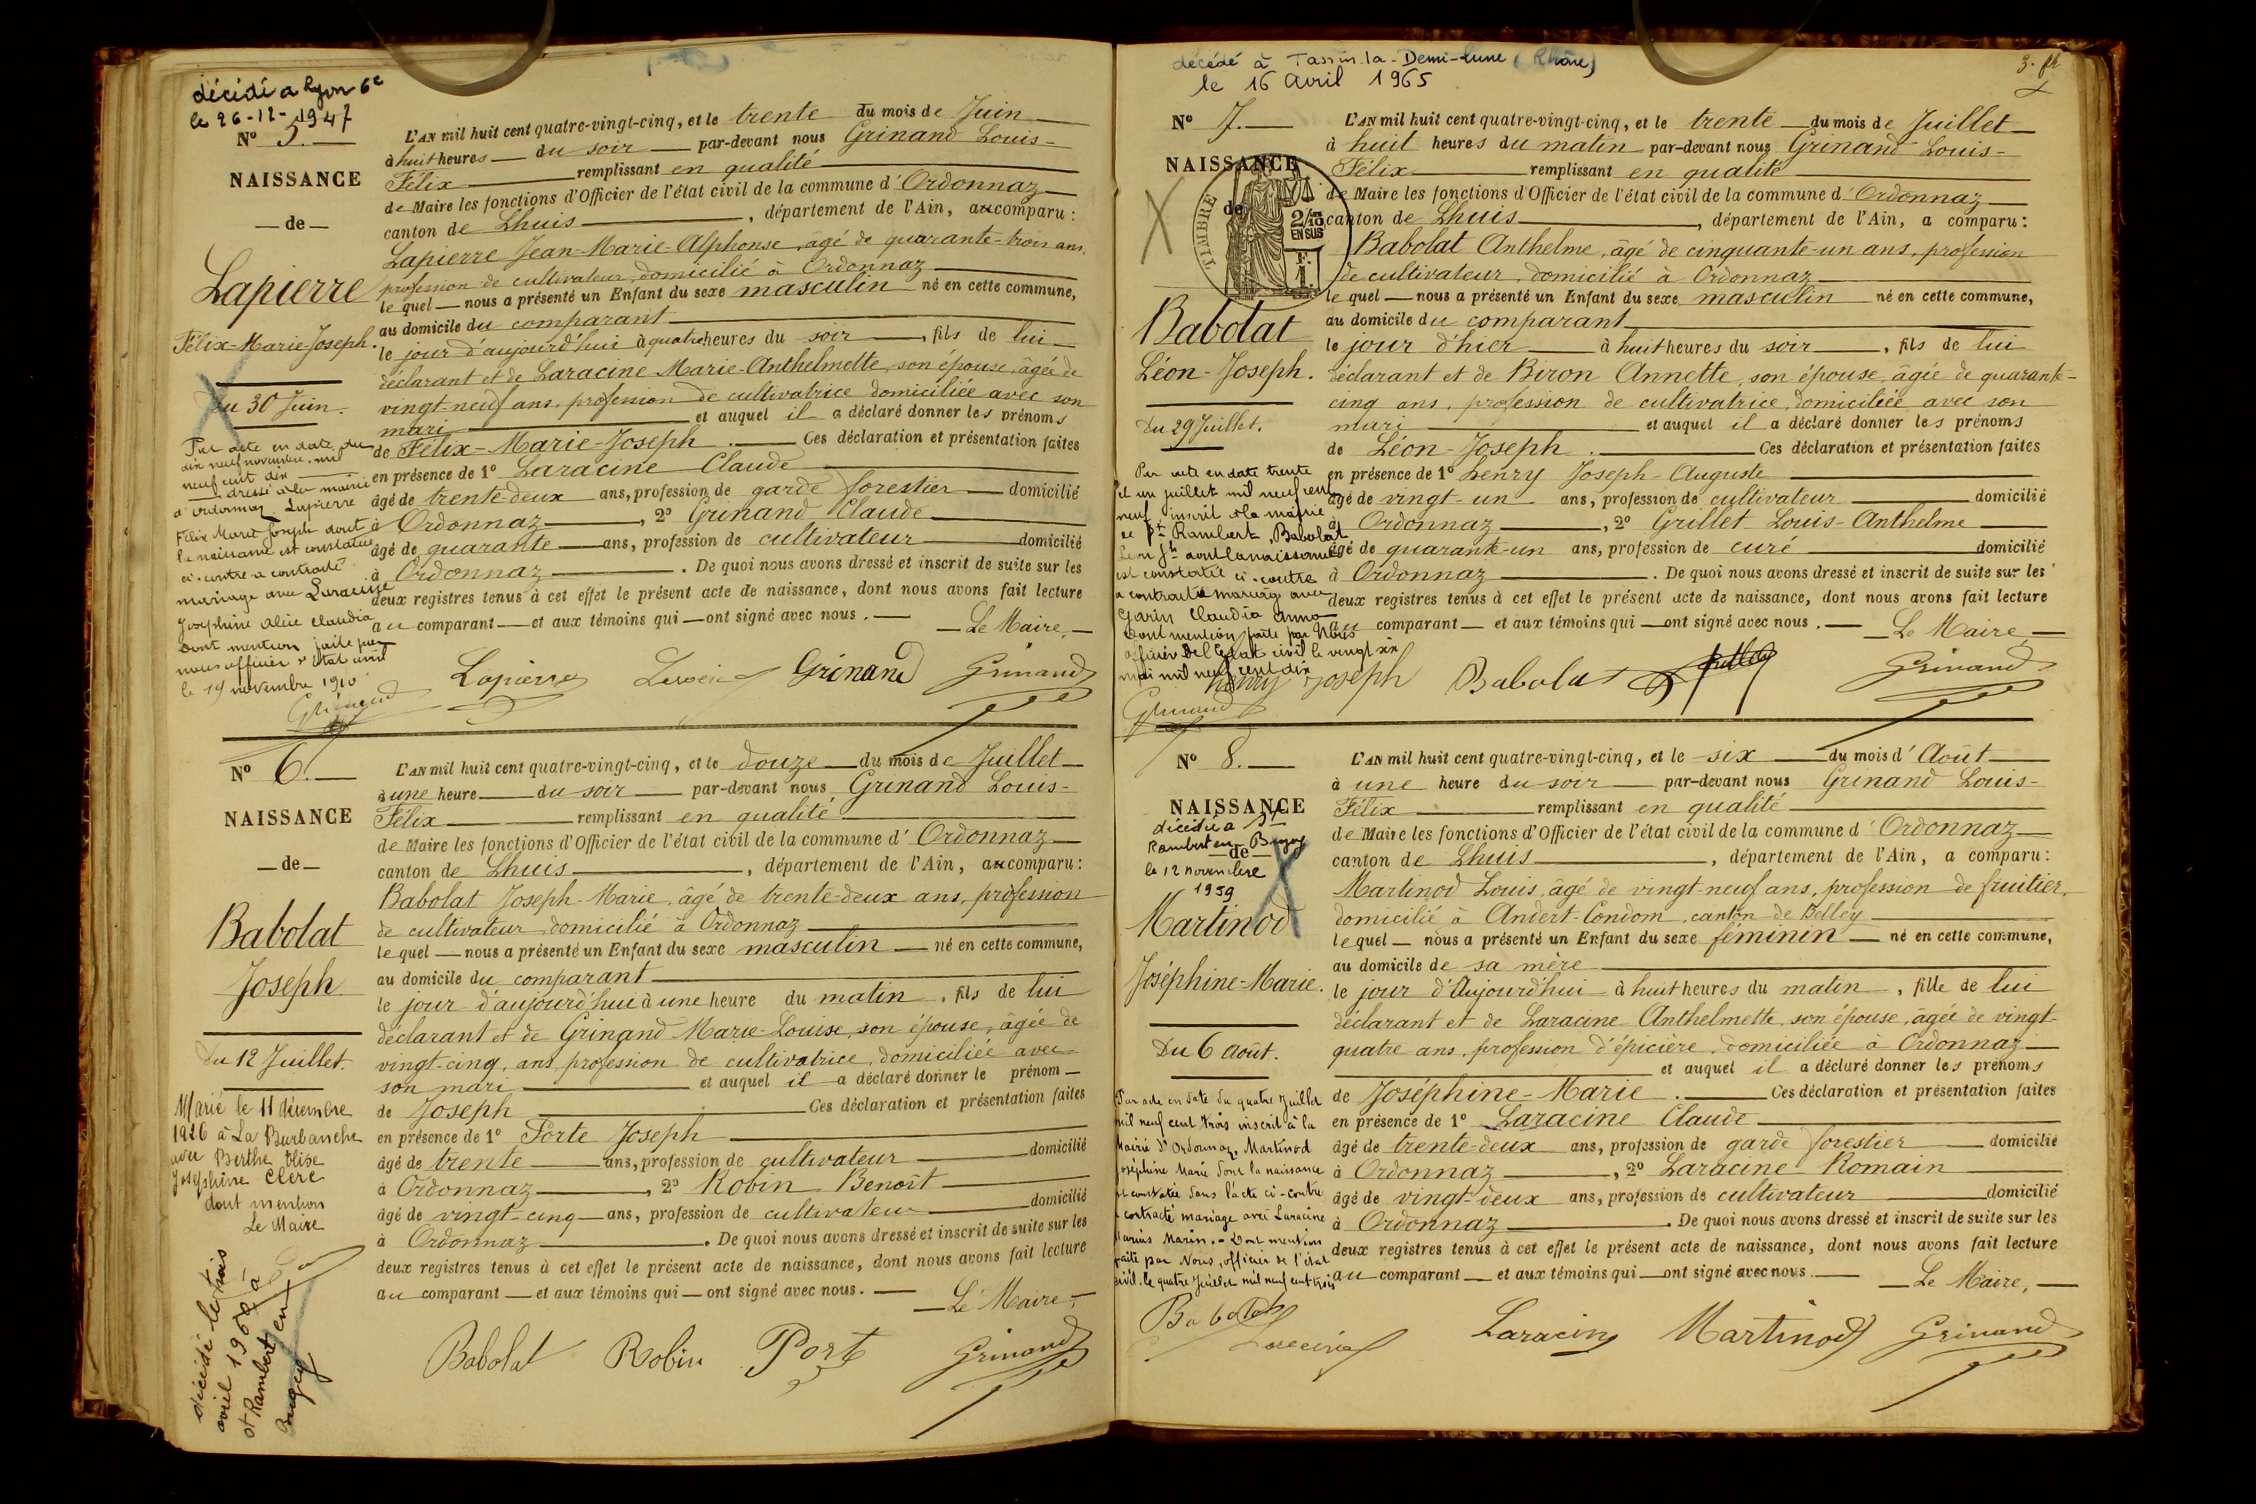 décédé à Lyon 6e
le 26-12-1947
No 5.
NAISSANCE
de
Lapierre
Félix-Marie-Joseph.
Du 30 Juin.
Par acte en date du
dix neuf novembre mil
neuf cent dix
dressé à la mairie
d'Ordonnaz Lapierre
Félix Marie Joseph dont
la naissance est constatée
ci-contre a contracté
mariage avec Laracine
Joséphine Alice Claudia
Dont mention faite par
nous officier d'état civil
le 19 novembre 1910
Grinand
L'AN mil huit cent quatre-vingt-cinq, et le trente du mois de Juin
à huit heures du soir par-devant nous Grinand Louis-
Félix remplissant en qualité
de Maire les fonctions d'Officier de l'état civil de la commune d'Ordonnaz
canton de Lhuis, département de l'Ain, a comparu :
Lapierre Jean-Marie-Alphonse, âgé de quarante-trois ans,
profession de cultivateur, domicilié à Ordonnaz
lequel nous a présenté un Enfant du sexe masculin né en cette commune,
au domicile du comparant
le jour d'aujourd'hui à quatre heures du soir, fils de lui
déclarant et de Laracine Marie-Anthelmette, son épouse, âgée de
vingt-neuf ans, profession de cultivatrice domiciliée avec son
mari et auquel il a déclaré donner les prénoms
de Félix-Marie-Joseph. Ces déclaration et présentation faites
en présence de 1o Laracine Claude
âgé de trente-deux ans, profession de garde forestier domicilié
à Ordonnaz, 2o Grinand Claude
âgé de quarante ans, profession de cultivateur domicilié
à Ordonnaz. De quoi nous avons dressé et inscrit de suite sur les
deux registres tenus à cet effet le présent acte de naissance, dont nous avons fait lecture
au comparant et aux témoins qui ont signé avec nous.
Le Maire,
Lapierre Grinand Grinand
No 6.
NAISSANCE
de
Babolat
Joseph
Du 12 Juillet.
Marié le 11 décembre
1926 à La Burbanche
avec Berthe Elise
Joséphine Clerc
dont mention
Le Maire
décédé le trois
avril 1960 à
St Rambert en
Bugey
L'AN mil huit cent quatre-vingt-cinq, et le douze du mois de Juillet
à une heure du soir par-devant nous Grinand Louis-
Félix remplissant en qualité
de Maire les fonctions d'Officier de l'état civil de la commune d'Ordonnaz
canton de Lhuis, département de l'Ain, a comparu :
Babolat Joseph-Marie, âgé de trente-deux ans, profession
de cultivateur domicilié à Ordonnaz
lequel nous a présenté un Enfant du sexe masculin né en cette commune,
au domicile du comparant
le jour d'aujourd'hui à une heure du matin, fils de lui
déclarant et de Grinand Marie-Louise, son épouse, âgée de
vingt-cinq ans, profession de cultivatrice, domiciliée avec
son mari et auquel il a déclaré donner le prénom
de Joseph Ces déclaration et présentation faites
en présence de 1o Porte Joseph
âgé de trente ans, profession de cultivateur domicilié
à Ordonnaz, 2o Robin Benoît
âgé de vingt-cinq ans, profession de cultivateur domicilié
à Ordonnaz. De quoi nous avons dressé et inscrit de suite sur les
deux registres tenus à cet effet le présent acte de naissance, dont nous avons fait lecture
au comparant et aux témoins qui ont signé avec nous.
Le Maire,
Babolat Robin Port Grinand
3.
décédé à Tassin-la-Demi-lune (Rhône)
le 16 Avril 1965
No 7.
NAISSANCE
de
TIMBRE
2/10 EN SUS
F. 1.
Babolat
Léon-Joseph.
Du 29 Juillet.
Par acte en date trente
et un juillet mil neuf cent
neuf inscrit à la mairie
de St Rambert, Babolat
Léon Jh dont la naissance
est constatée ci-contre
a contracté mariage avec
Garin Claudia Anna
Dont mention faite par Nous
officier de l'Etat civil le vingt six
mai mil neuf cent dix
Grinand
L'AN mil huit cent quatre-vingt-cinq, et le trente du mois de Juillet
à huit heures du matin par-devant nous Grinand Louis-
Félix remplissant en qualité
de Maire les fonctions d'Officier de l'état civil de la commune d'Ordonnaz
canton de Lhuis, département de l'Ain, a comparu :
Babolat Anthelme, âgé de cinquante-un ans, profession
de cultivateur, domicilié à Ordonnaz
lequel nous a présenté un Enfant du sexe masculin né en cette commune,
au domicile du comparant
le jour d'hier à huit heures du soir, fils de lui
déclarant et de Biron Annette, son épouse, âgée de quarante-
cinq ans, profession de cultivatrice, domiciliée avec son
mari et auquel il a déclaré donner les prénoms
de Léon-Joseph. Ces déclaration et présentation faites
en présence de 1o Henry Joseph-Auguste
âgé de vingt-un ans, profession de cultivateur domicilié
à Ordonnaz, 2o Grillet Louis-Anthelme
âgé de quarante-un ans, profession de curé domicilié
à Ordonnaz. De quoi nous avons dressé et inscrit de suite sur les
deux registres tenus à cet effet le présent acte de naissance, dont nous avons fait lecture
au comparant et aux témoins qui ont signé avec nous.
Le Maire
henry joseph Babolat Grillet Grinand
No 8.
NAISSANCE
de
décédée à St
Rambert en Bugey
le 12 novembre
1959
Martinod
Joséphine-Marie.
Du 6 Août.
Par acte en date du quatre Juillet
mil neuf cent trois inscrit à la
Mairie d'Ordonnaz, Martinod
Joséphine Marie dont la naissance
est constatée dans l'acte ci-contre
a contracté mariage avec Laracine
Marius Marin. - Dont mention
faite par Nous, officier de l'état
civil le quatre Juillet mil neuf cent trois
L'AN mil huit cent quatre-vingt-cinq, et le six du mois d'Août
à une heure du soir par-devant nous Grinand Louis-
Félix remplissant en qualité
de Maire les fonctions d'Officier de l'état civil de la commune d'Ordonnaz
canton de Lhuis, département de l'Ain, a comparu :
Martinod Louis, âgé de vingt-neuf ans, profession de fruitier,
domicilié à Andert-Condom, canton de Belley
lequel nous a présenté un Enfant du sexe féminin né en cette commune,
au domicile de sa mère
le jour d'Aujourd'hui à huit heures du matin, fille de lui
déclarant et de Laracine Anthelmette, son épouse, âgée de vingt-
quatre ans, profession d'épicière, domiciliée à Ordonnaz
et auquel il a déclaré donner les prénoms
de Joséphine-Marie. Ces déclaration et présentation faites
en présence de 1o Laracine Claude
âgé de trente-deux ans, profession de garde forestier domicilié
à Ordonnaz, 2o Laracine Romain
âgé de vingt-deux ans, profession de cultivateur domicilié
à Ordonnaz. De quoi nous avons dressé et inscrit de suite sur les
deux registres tenus à cet effet le présent acte de naissance, dont nous avons fait lecture
au comparant et aux témoins qui ont signé avec nous.
Le Maire,
Babolat Laracine Laracine Martinod Grinand